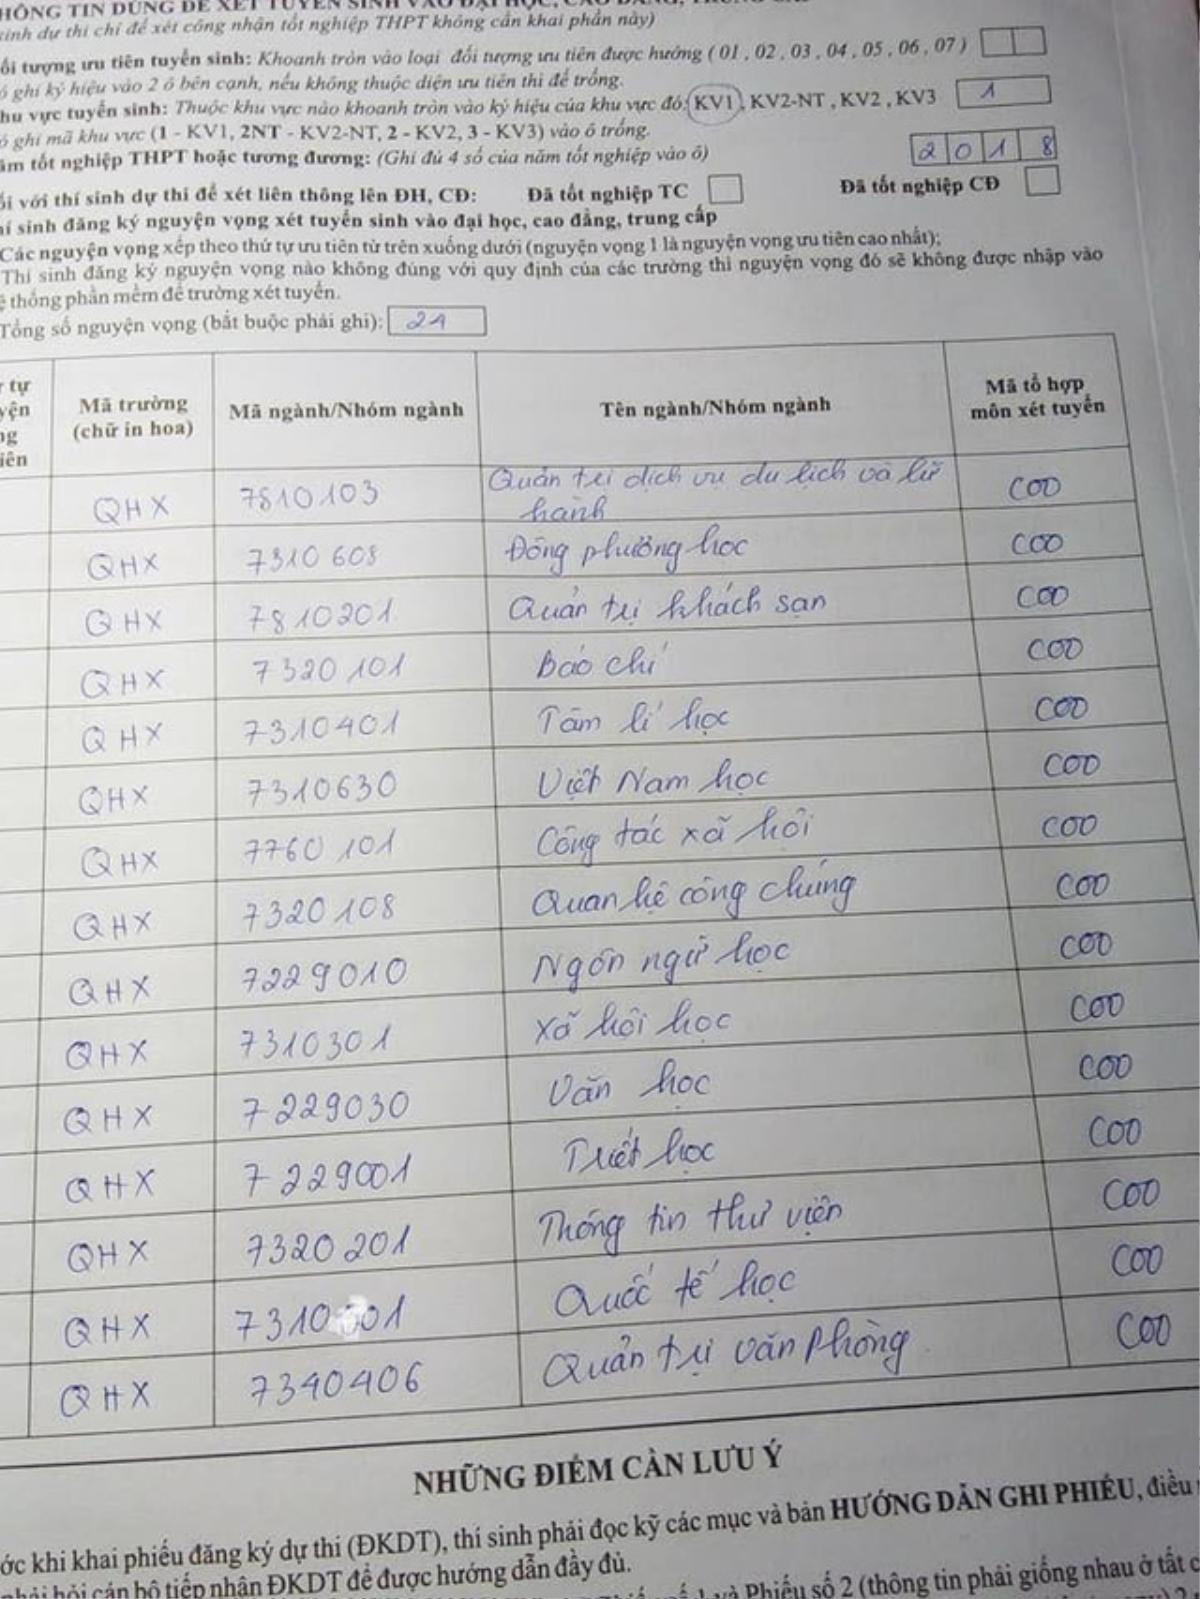 HÔNG TIN DÙNG ĐỂ XÉT TUYỂN SINH VÀO ĐẠI HỌC, CAO ĐẲNG, TRUNG
sinh dự thi chỉ để xét công nhận tốt nghiệp THPT không cần khai phần này)
ối tượng ưu tiên tuyển sinh: Khoanh tròn vào loại đối tượng ưu tiên được hưởng ( 01 , 02 , 03 , 04 , 05 , 06 , 07 )
ó ghi ký hiệu vào 2 ô bên cạnh, nếu không thuộc diện ưu tiên thì để trống.
hu vực tuyển sinh: Thuộc khu vực nào khoanh tròn vào ký hiệu của khu vực đó: KV1 , KV2-NT , KV2 , KV3 1
ó ghi mã khu vực (1 - KV1, 2NT - KV2-NT, 2 - KV2, 3 - KV3) vào ô trống.
ăm tốt nghiệp THPT hoặc tương đương: (Ghi đủ 4 số của năm tốt nghiệp vào ô) 2 0 1 8
ối với thí sinh dự thi để xét liên thông lên ĐH, CĐ: Đã tốt nghiệp TC Đã tốt nghiệp CĐ
hí sinh đăng ký nguyện vọng xét tuyển sinh vào đại học, cao đẳng, trung cấp
Các nguyện vọng xếp theo thứ tự ưu tiên từ trên xuống dưới (nguyện vọng 1 là nguyện vọng ưu tiên cao nhất);
Thí sinh đăng ký nguyện vọng nào không đúng với quy định của các trường thì nguyện vọng đó sẽ không được nhập vào
ệ thống phần mềm để trường xét tuyển.
Tổng số nguyện vọng (bắt buộc phải ghi): 21
tự
yện
ng
iên
Mã trường
(chữ in hoa)
Mã ngành/Nhóm ngành
Tên ngành/Nhóm ngành
Mã tổ hợp
môn xét tuyển
QHX 7810103 Quản trị dịch vụ du lịch và lữ
hành C00
QHX 7310608 Đông phương học C00
QHX 7810201 Quản trị khách sạn C00
QHX 7320101 Báo chí C00
QHX 7310401 Tâm lí học C00
QHX 7310630 Việt Nam học C00
QHX 7760101 Công tác xã hội C00
QHX 7320108 Quan hệ công chúng C00
QHX 7229010 Ngôn ngữ học C00
QHX 7310301 Xã hội học C00
QHX 7229030 Văn học C00
QHX 7229001 Triết học C00
QHX 7320201 Thông tin thư viện C00
QHX 7310601 Quốc tế học C00
QHX 7340406 Quản trị văn phòng C00
NHỮNG ĐIỂM CẦN LƯU Ý
ớc khi khai phiếu đăng ký dự thi (ĐKDT), thí sinh phải đọc kỹ các mục và bản HƯỚNG DẪN GHI PHIẾU, điều
phải hỏi cán bộ tiếp nhận ĐKDT để được hướng dẫn đầy đủ.
số 1 và Phiếu số 2 (thông tin phải giống nhau ở tất c